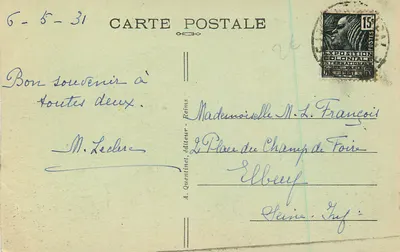 6-5-31
CARTE POSTALE
15c
EXPOSITION
COLONIALE
INTERNATIONALE
Bon souvenir à
toutes deux.
M. Leclerc
A. Quentinet, éditeur - Reims
Mademoiselle M. L. François
2 Place du Champ de Foire
Elbeuf
Seine-Infre